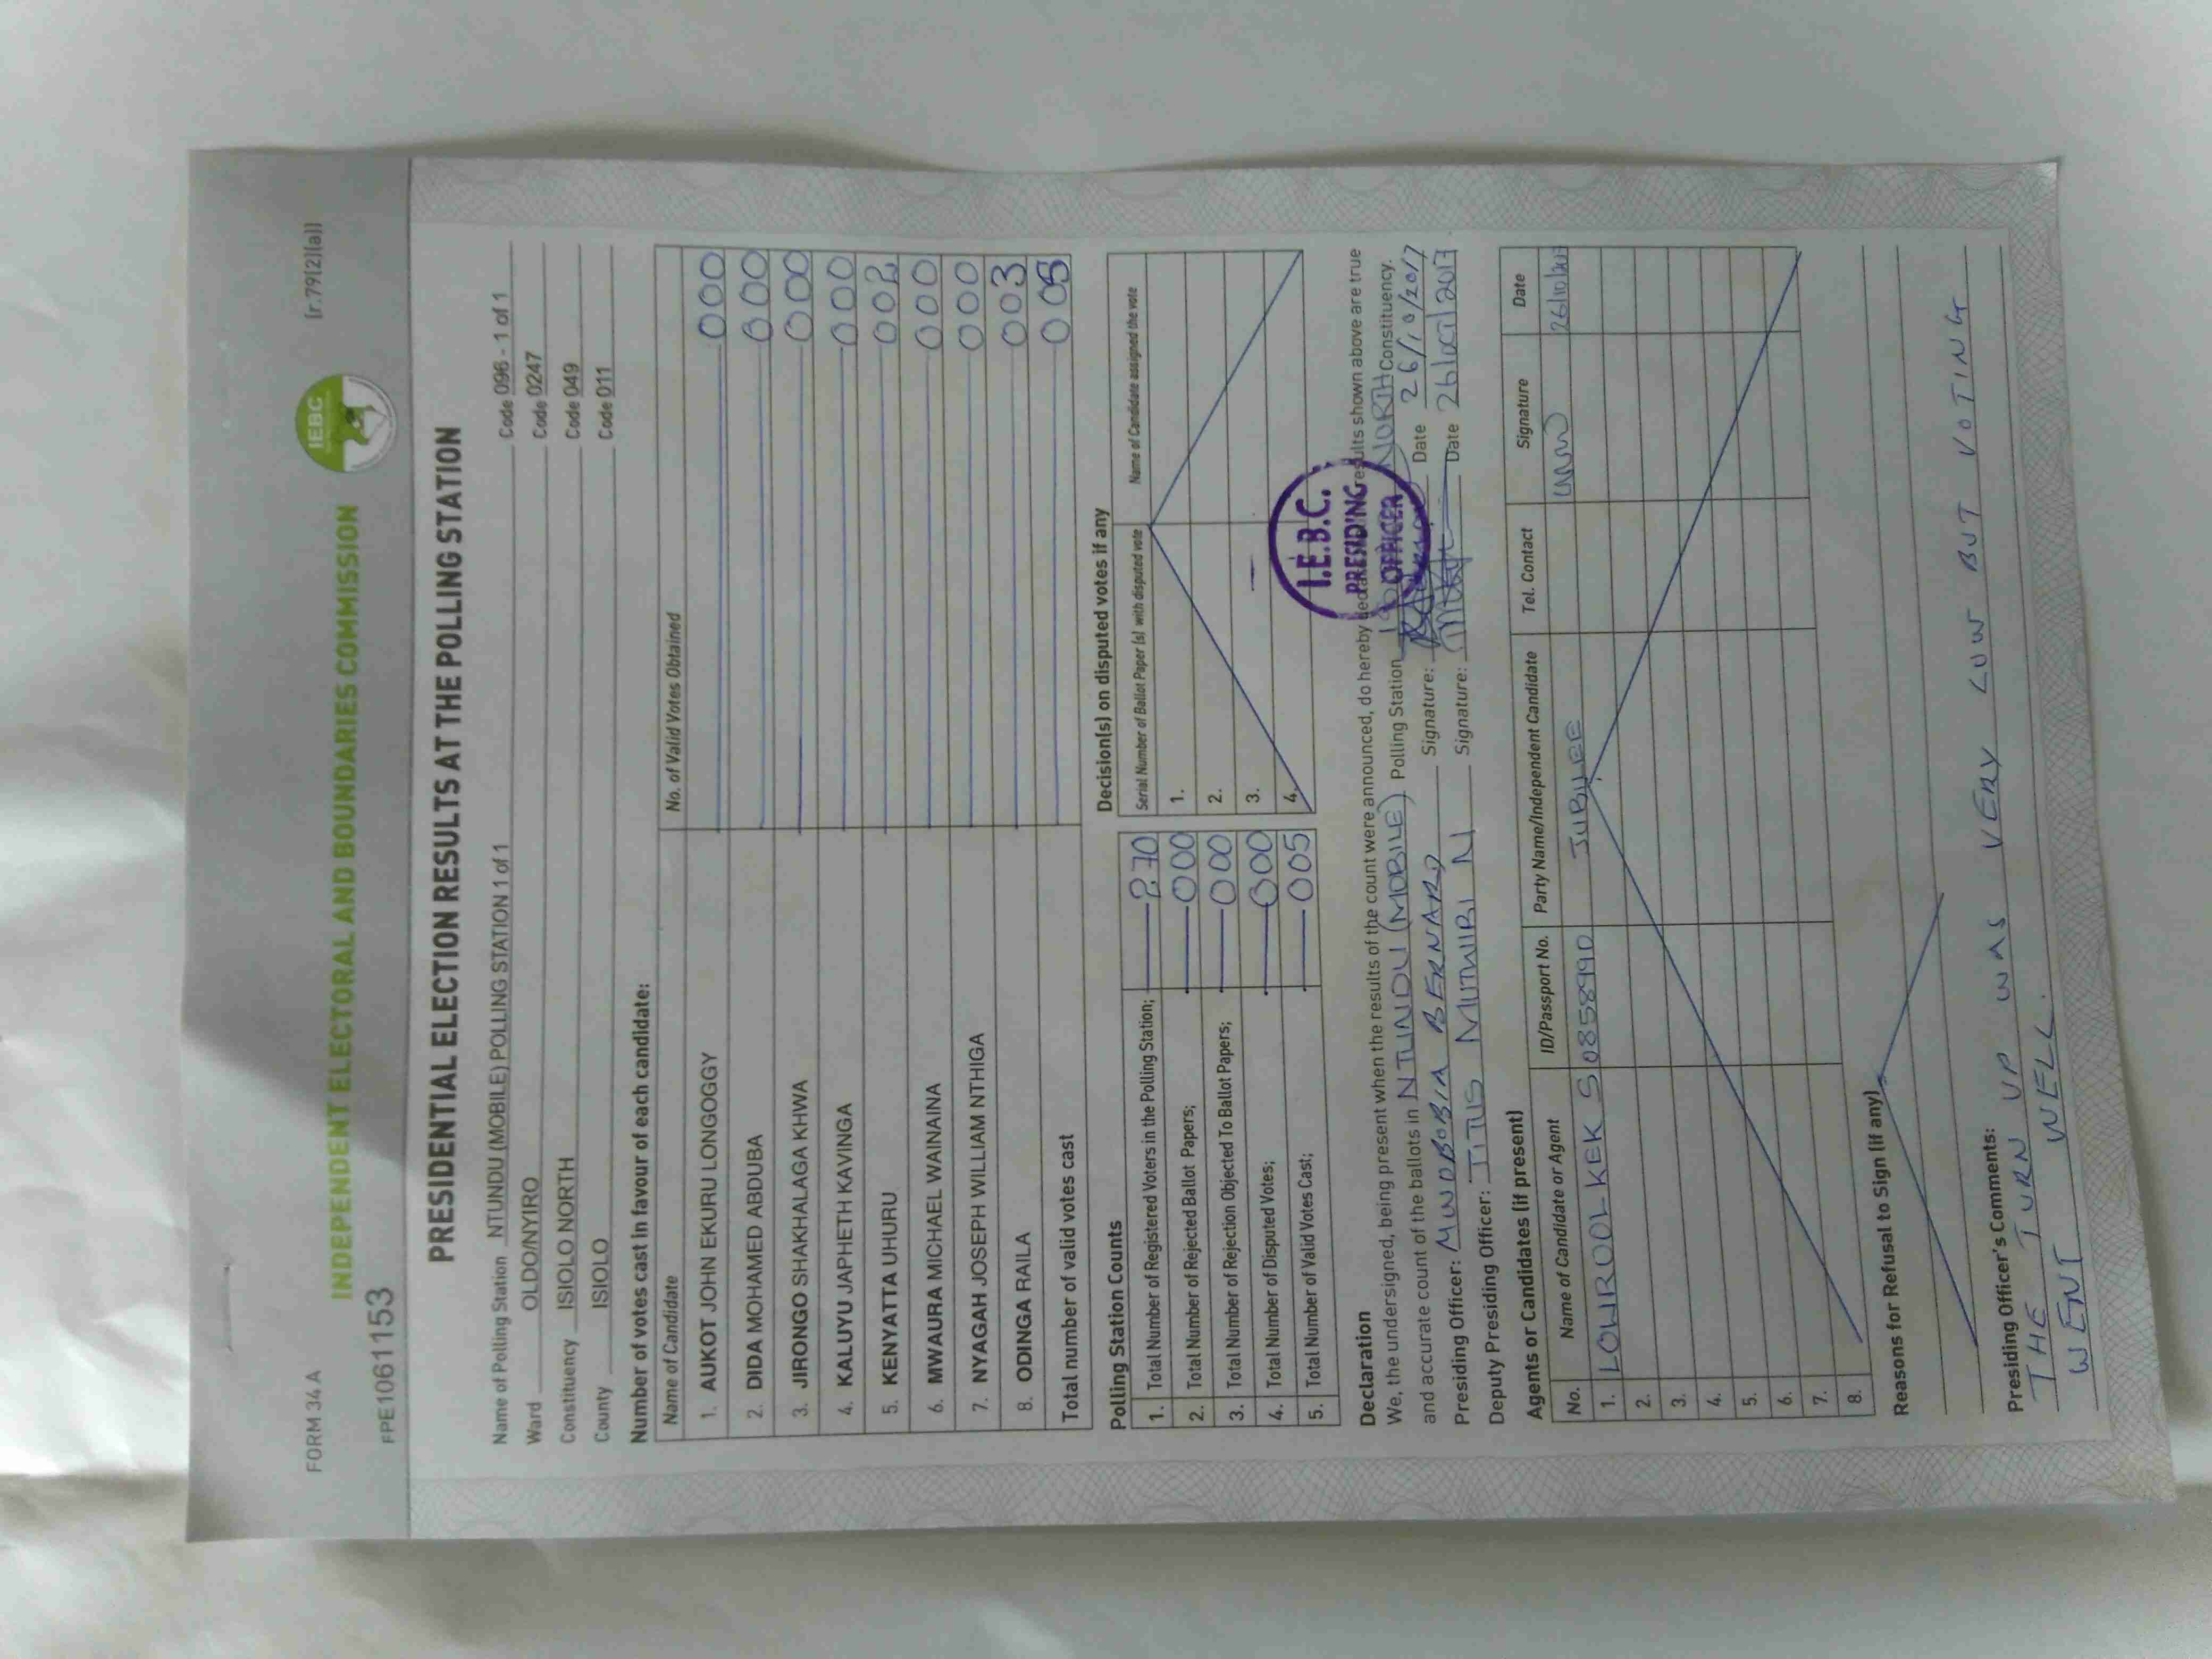 FORM 34 A
(r.79(2)(a))
IEBC
INDEPENDENT ELECTORAL AND BOUNDARIES COMMISSION
FPE1061153
PRESIDENTIAL ELECTION RESULTS AT THE POLLING STATION
Name of Polling Station NTUNDU (MOBILE) POLLING STATION 1 of 1 Code 096 - 1 of 1
Ward OLDO/NYIRO Code 0247
Constituency ISIOLO NORTH Code 049
County ISIOLO Code 011
Number of votes cast in favour of each candidate:
Name of Candidate No. of Valid Votes Obtained
1. AUKOT JOHN EKURU LONGOGGY 000
2. DIDA MOHAMED ABDUBA 000
3. JIRONGO SHAKHALAGA KHWA 000
4. KALUYU JAPHETH KAVINGA 000
5. KENYATTA UHURU 002
6. MWAURA MICHAEL WAINAINA 000
7. NYAGAH JOSEPH WILLIAM NTHIGA 000
8. ODINGA RAILA 003
Total number of valid votes cast 005
Polling Station Counts
1. Total Number of Registered Voters in the Polling Station; 270
2. Total Number of Rejected Ballot Papers; 000
3. Total Number of Rejection Objected To Ballot Papers; 000
4. Total Number of Disputed Votes; 000
5. Total Number of Valid Votes Cast; 005
Decision(s) on disputed votes if any
Serial Number of Ballot Paper (s) with disputed vote Name of Candidate assigned the vote
1.
2.
3.
4.
I.E.B.C.
PRESIDING
OFFICER
Declaration
We, the undersigned, being present when the results of the count were announced, do hereby declare results shown above are true
and accurate count of the ballots in NTUNDU (MOBILE) Polling Station NORTH Constituency.
Presiding Officer: MWOBOBIA BERNARD Signature: Date 26/10/2017
Deputy Presiding Officer: TITUS MUTWIRI N Signature: Date 26/oct/2017
Agents or Candidates (if present)
No. Name of Candidate or Agent ID/Passport No. Party Name/Independent Candidate Tel. Contact Signature Date
1. LOWROOLKEK S 08558990 JUBILEE
2.
3.
4.
5.
6.
7.
8.
Reasons for Refusal to Sign (if any)
Presiding Officer's Comments:
THE TURN UP WAS VERY LOW BUT VOTING
WENT WELL.